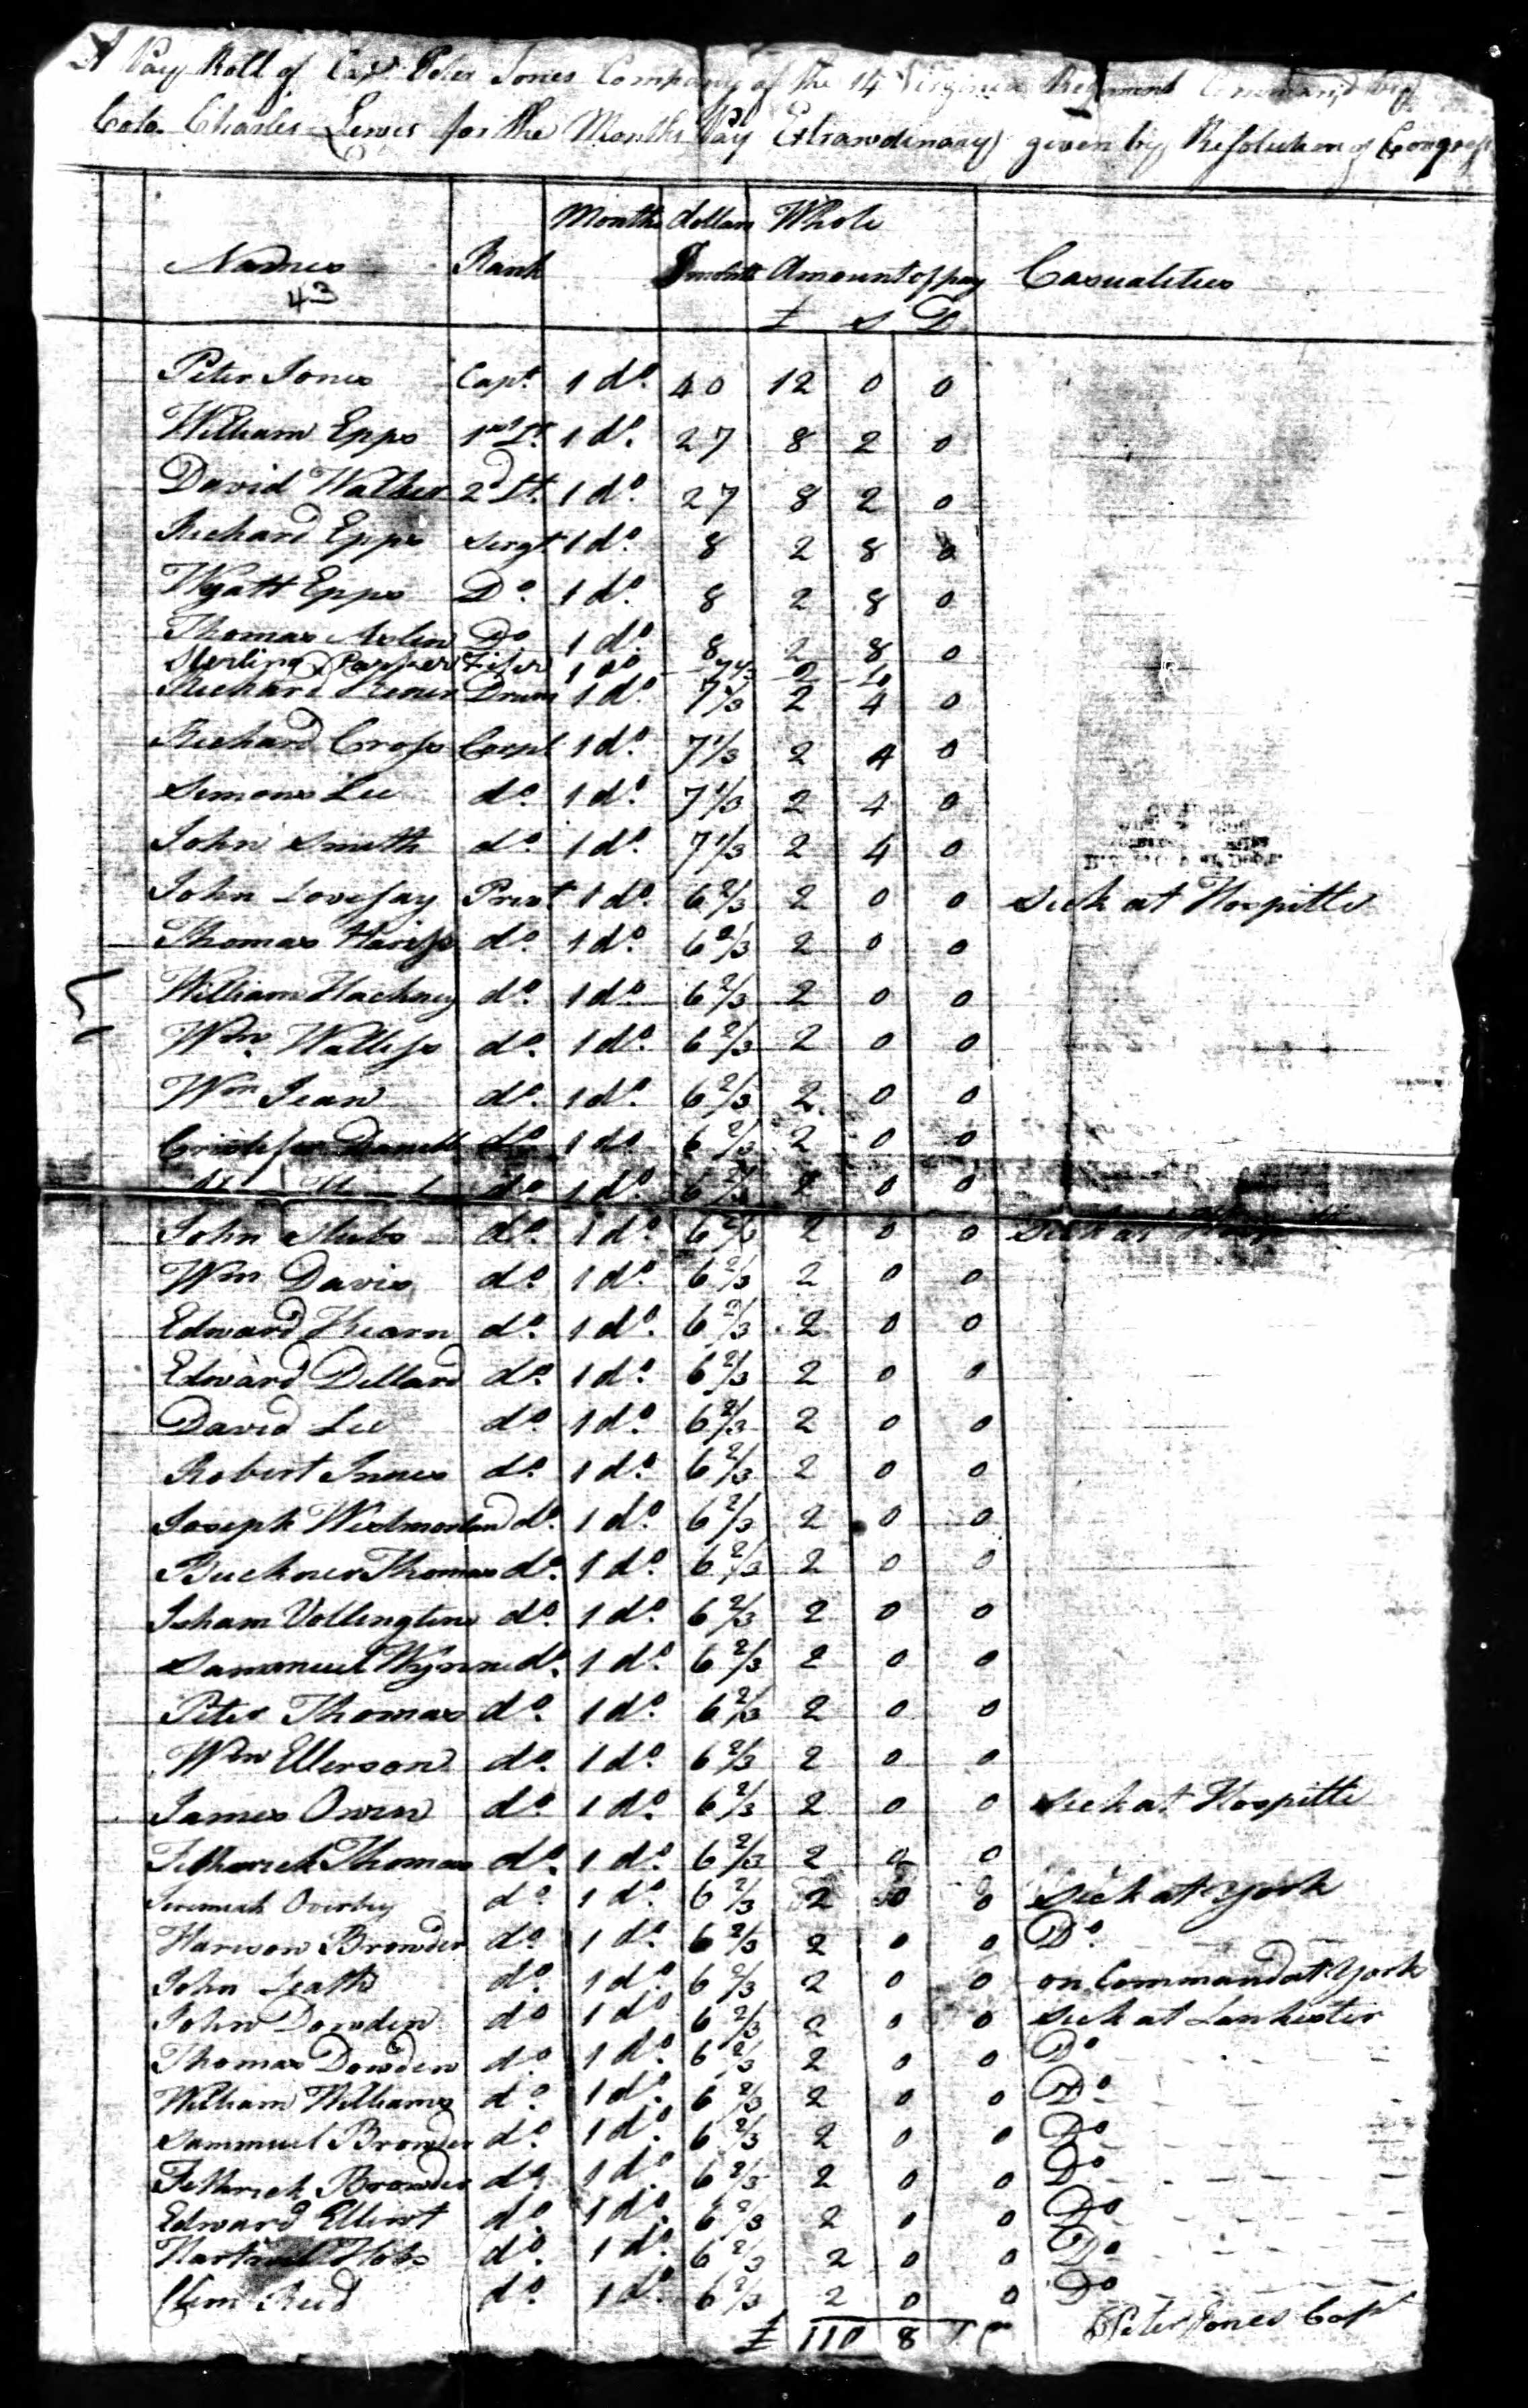 A Pay Roll of Capt Peter Jones Company of the 14 Virginia Regiment Command by
Colo. Charles Lewis for the Months Pay Extrawdinaary given by Resolution of Congress
Months dollars Whole
Names Rank Amount of pay Casualities
43
£ S D
Peter Jones Capt 1 do. 40 12 0 0
William Epps 1st Lt. 1 do. 27 8 2 0
David Walker 2d Lt. 1 do. 27 8 2 0
Richard Epps Sergt 1 do. 8 2 8 0
Wyatt Epps Do. 1 do. 8 2 8 0
Thomas Do 1 do. 8 2 8 0
Sterling Parker Fifer 1 do
Richard Drum 1 do. 7 1/3 2 4 0
Richard Cross Corpl 1 do. 7 1/3 2 4 0
Simons Lee do. 1 do. 7 1/3 2 4 0
John Smith do. 1 do. 7 1/3 2 4 0
John Lovesay Privt 1 do. 6 2/3 2 0 0 Sick at Hospitle
Thomas do. 1 do. 6 2/3 2 0 0
William Hackney do. 1 do 6 2/3 2 0 0
Wm. Walless do. 1 do. 6 2/3 2 0 0
Wm Jean do. 1 do. 6 2/3 2 0 0
do 1 do 6 2/3 2 0 0
do. 1 do. 6 2/3 2 0 0
John Stubs do. 1 do. 6 2/3 2 0 0 Sick at
Wm Davis do. 1 do. 6 2/3 2 0 0
Edward Kearn do. 1 do. 6 2/3 2 0 0
Edward Dillard do. 1 do. 6 2/3 2 0 0
David Lee do. 1 do. 6 2/3 2 0 0
Robert Innes do. 1 do. 6 2/3 2 0 0
Joseph Wesmorland do. 1 do. 6 2/3 2 0 0
Buckner Thomas do. 1 do. 6 2/3 2 0 0
Isham Vollingtine do. 1 do. 6 2/3 2 0 0
Sammuel Wynne do. 1 do. 6 2/3 2 0 0
Peter Thomas do. 1 do. 6 2/3 2 0 0
Wm Ellerson do. 1 do. 6 2/3 2 0 0
James Owen do. 1 do. 6 2/3 2 0 0 Sick at Hospitle
Thomas do. 1 do. 6 2/3 2 0 0
Jeremiah Overby do. 1 do. 6 2/3 2 0 0 Sick at York
Harison Browder do. 1 do. 6 2/3 2 0 0 Do.
John Leath do. 1 do. 6 2/3 2 0 0 on Command at York
John Dowden do 1 do 6 2/3 2 0 0 Sick at Lankester
Thomas Dowden do 1 do. 6 2/3 2 0 0 Do
William Williams do. 1 do. 6 2/3 2 0 0 Do
Sammuel Browder do. 1 do. 6 2/3 2 0 0 Do
Browder do. 1 do. 6 2/3 2 0 0 Do
Edward Elliot do. 1 do. 6 2/3 2 0 0 Do
Hobs do. 1 do. 6 2/3 2 0 0 Do
Clem Reed do. 1 do. 6 2/3 2 0 0 Do
£ 110 8 Peter Jones Capt